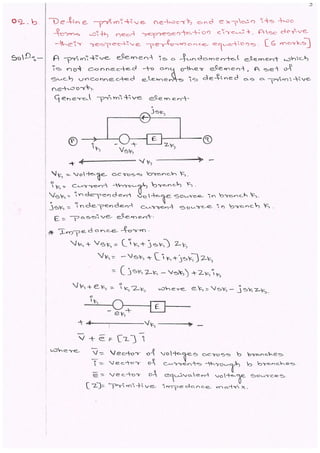 2
Q2.b Define primitive network and explain its two
forms with neat representation circuit. Also derive
their respective performance equations. [6 marks]
Sol:- A primitive element is a fundamental element which
is not connected to any other element, A set of
such unconnected elements is defined as a primitive
network.
General primitive element.
jsk
P ik - + E Zk Q
Vsk
+ Vk -
Vk = Voltage across branch k.
ik = Current through branch k.
Vsk = independent voltage source in branch k.
jsk = independent current source in branch k.
E = passive element.
* Impedance form.
Vk + Vsk = (ik + jsk) Zk
Vk = -Vsk + [ik + jsk] Zk
= (jsk Zk - Vsk) + Zk ik
Vk + ek = ik Zk where ek = Vsk - jsk Zk.
ik E
- ek +
+ Vk -
V + e = [Z] i
where V = Vector of voltages across b branches
i = Vector of currents through b branches
e = vector of equivalent voltage sources
[Z] = Primitive impedance matrix.